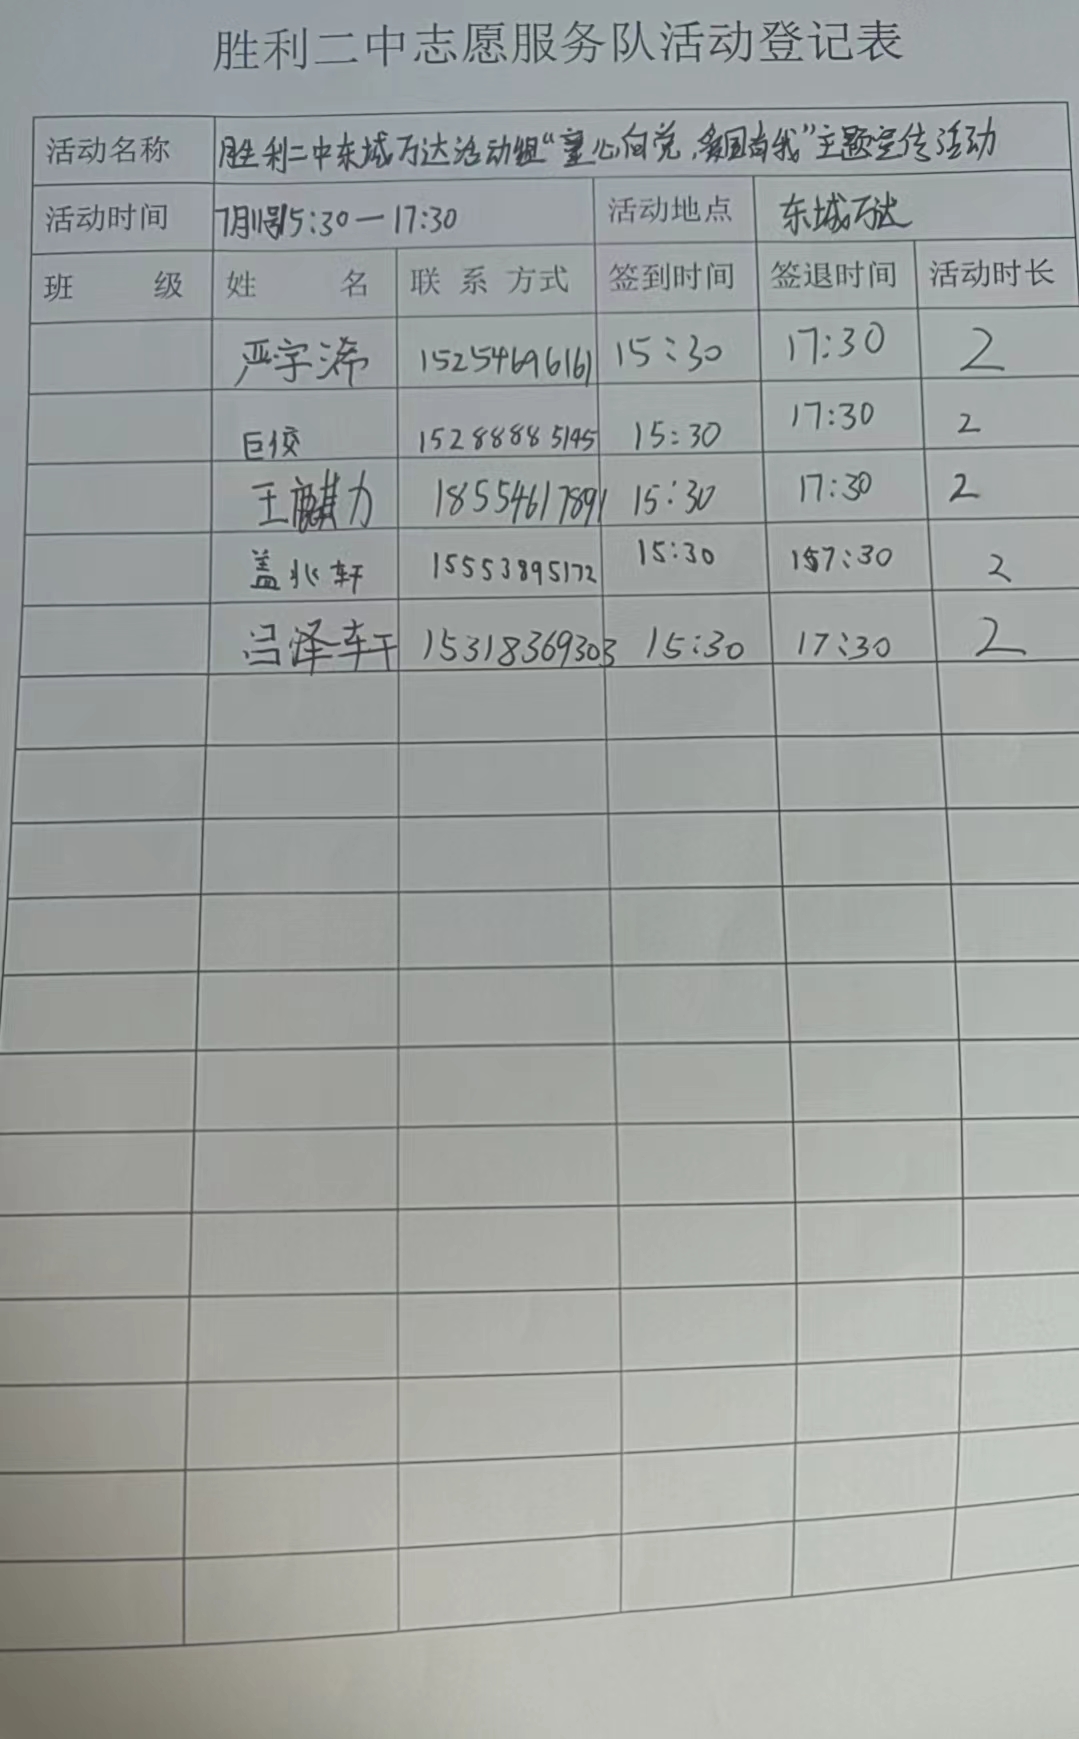 胜利二中志愿服务队活动登记表
活动名称 胜利二中东城万达活动组“童心向党,强国有我”主题宣传活动
活动时间 7月 15:30—17:30 活动地点 东城万达
班 级 姓 名 联系方式 签到时间 签退时间 活动时长
严宇 15254696161 15:30 17:30 2
巨佼 15288885145 15:30 17:30 2
王麒力 18554617891 15:30 17:30 2
盖兆轩 15553895172 15:30 17:30 2
吕泽轩 15318369303 15:30 17:30 2